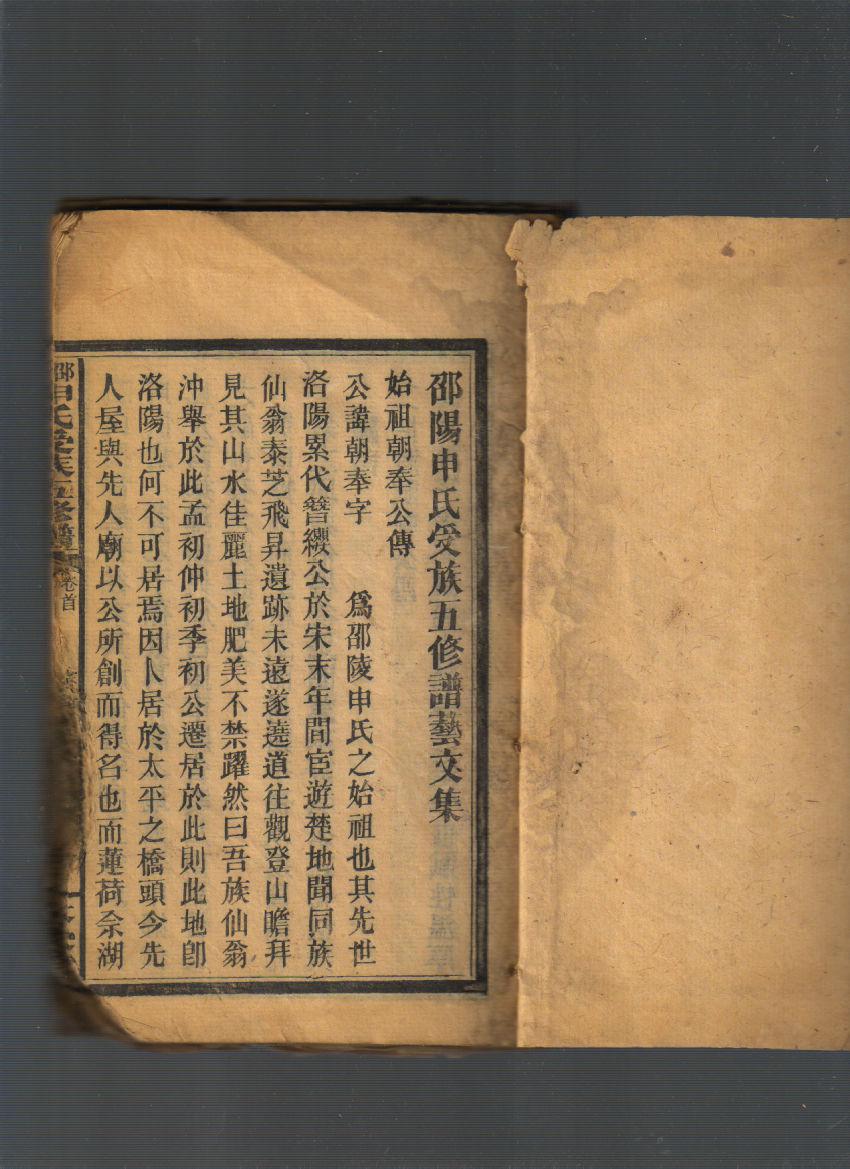 邵陽申氏受族五修譜藝文集
始祖朝奉公傳
公諱朝奉字　爲邵陵申氏之始祖也其先世
洛陽累代簪纓公於宋末年間宦遊楚地聞同族
仙翁泰芝飛昇遺跡未遠遂遶道往觀登山瞻拜
見其山水佳麗土地肥美不禁躍然曰吾族仙翁
沖舉於此孟初仲初季初公遷居於此則此地卽
洛陽也何不可居焉因卜居於太平之橋頭今先
人屋與先人廟以公所創而得名也而蓮荷佘湖
邵申氏受族五修譜
卷首